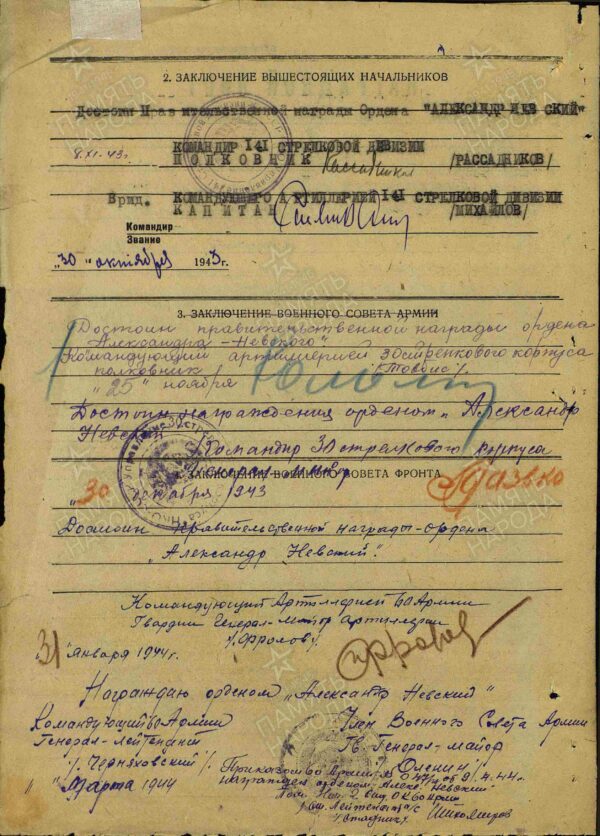 2. ЗАКЛЮЧЕНИЕ ВЫШЕСТОЯЩИХ НАЧАЛЬНИКОВ
Достоин Правительственной награды Ордена "АЛЕКСАНДР НЕВСКИЙ"
КОМАНДИР 141 СТРЕЛКОВОЙ ДИВИЗИИ
8.XI.43г. ПОЛКОВНИК Рассадников /РАССАДНИКОВ/
Врид. КОМАНДУЮЩЕГО АРТИЛЛЕРИЕЙ 141 СТРЕЛКОВОЙ ДИВИЗИИ
КАПИТАН /МИХАЙЛОВ/
Командир
Звание
"30" октября 1943г.
3. ЗАКЛЮЧЕНИЕ ВОЕННОГО СОВЕТА АРМИИ
Достоин правительственной награды ордена
"Александра-Невского"
Командующий артиллерией 30 стрелкового корпуса
полковник
"25" ноября
Достоин награждения орденом "Александр
Невский" Командир 30 стрелкового корпуса
Генерал-майор
ЗАКЛЮЧЕНИЕ ВОЕННОГО СОВЕТА ФРОНТА
"30" декабря 1943
Достоин правительственной награды-ордена
"Александр Невский".
Командующий Артиллерией 60 Армии
Гвардии Генерал-майор артиллерии
/Фролов/
"31" января 1944г.
Награждаю орденом "Александр Невский"
Командующий 60 Армии
Генерал-лейтенант
/Черняховский/
" " Марта 1944
Член Военного Совета Армии
Гв. Генерал-майор
/Оленин/
Приказом 60 Армии
награжден орденом Алекс. Невский
ПАМЯТЬ НАРОДА